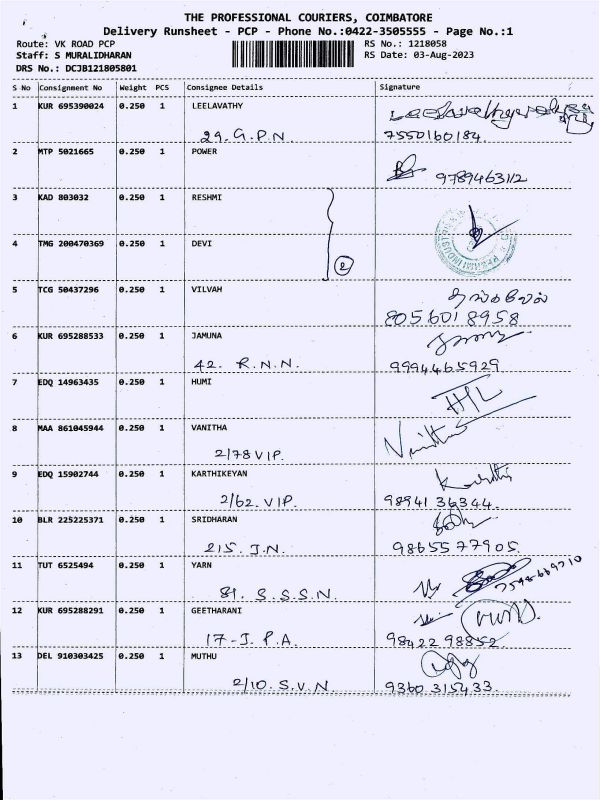 THE PROFESSIONAL COURIERS, COIMBATORE
Delivery Runsheet - PCP - Phone No.:0422-3505555 - Page No.:1
Route: VK ROAD PCP RS No.: 1218058
Staff: S MURALIDHARAN RS Date: 03-Aug-2023
DRS No.: DCJB121805801
S No Consignment No Weight PCS Consignee Details Signature
1 KUR 695390024 0.250 1 LEELAVATHY
29. G.P.N. 7550160184.
2 MTP 5021665 0.250 1 POWER
9789463112
3 KAD 803032 0.250 1 RESHMI
4 TMG 200470369 0.250 1 DEVI
2
5 TCG 50437296 0.250 1 VILVAH
தங்கவேல்
8056018958
6 KUR 695288533 0.250 1 JAMUNA
42. R.N.N. 9994465929
7 EDQ 14963435 0.250 1 HUMI
8 MAA 861045944 0.250 1 VANITHA
2/78 VIP.
9 EDQ 15902744 0.250 1 KARTHIKEYAN
2/62. VIP. 98941 36344.
10 BLR 225225371 0.250 1 SRIDHARAN
215. J.N. 9865577905.
11 TUT 6525494 0.250 1 YARN
81. S.S.S.N.
12 KUR 695288291 0.250 1 GEETHARANI
17-J. P.A. 98422 98852.
13 DEL 910303425 0.250 1 MUTHU
2/10. S.V.N. 9360 315433.